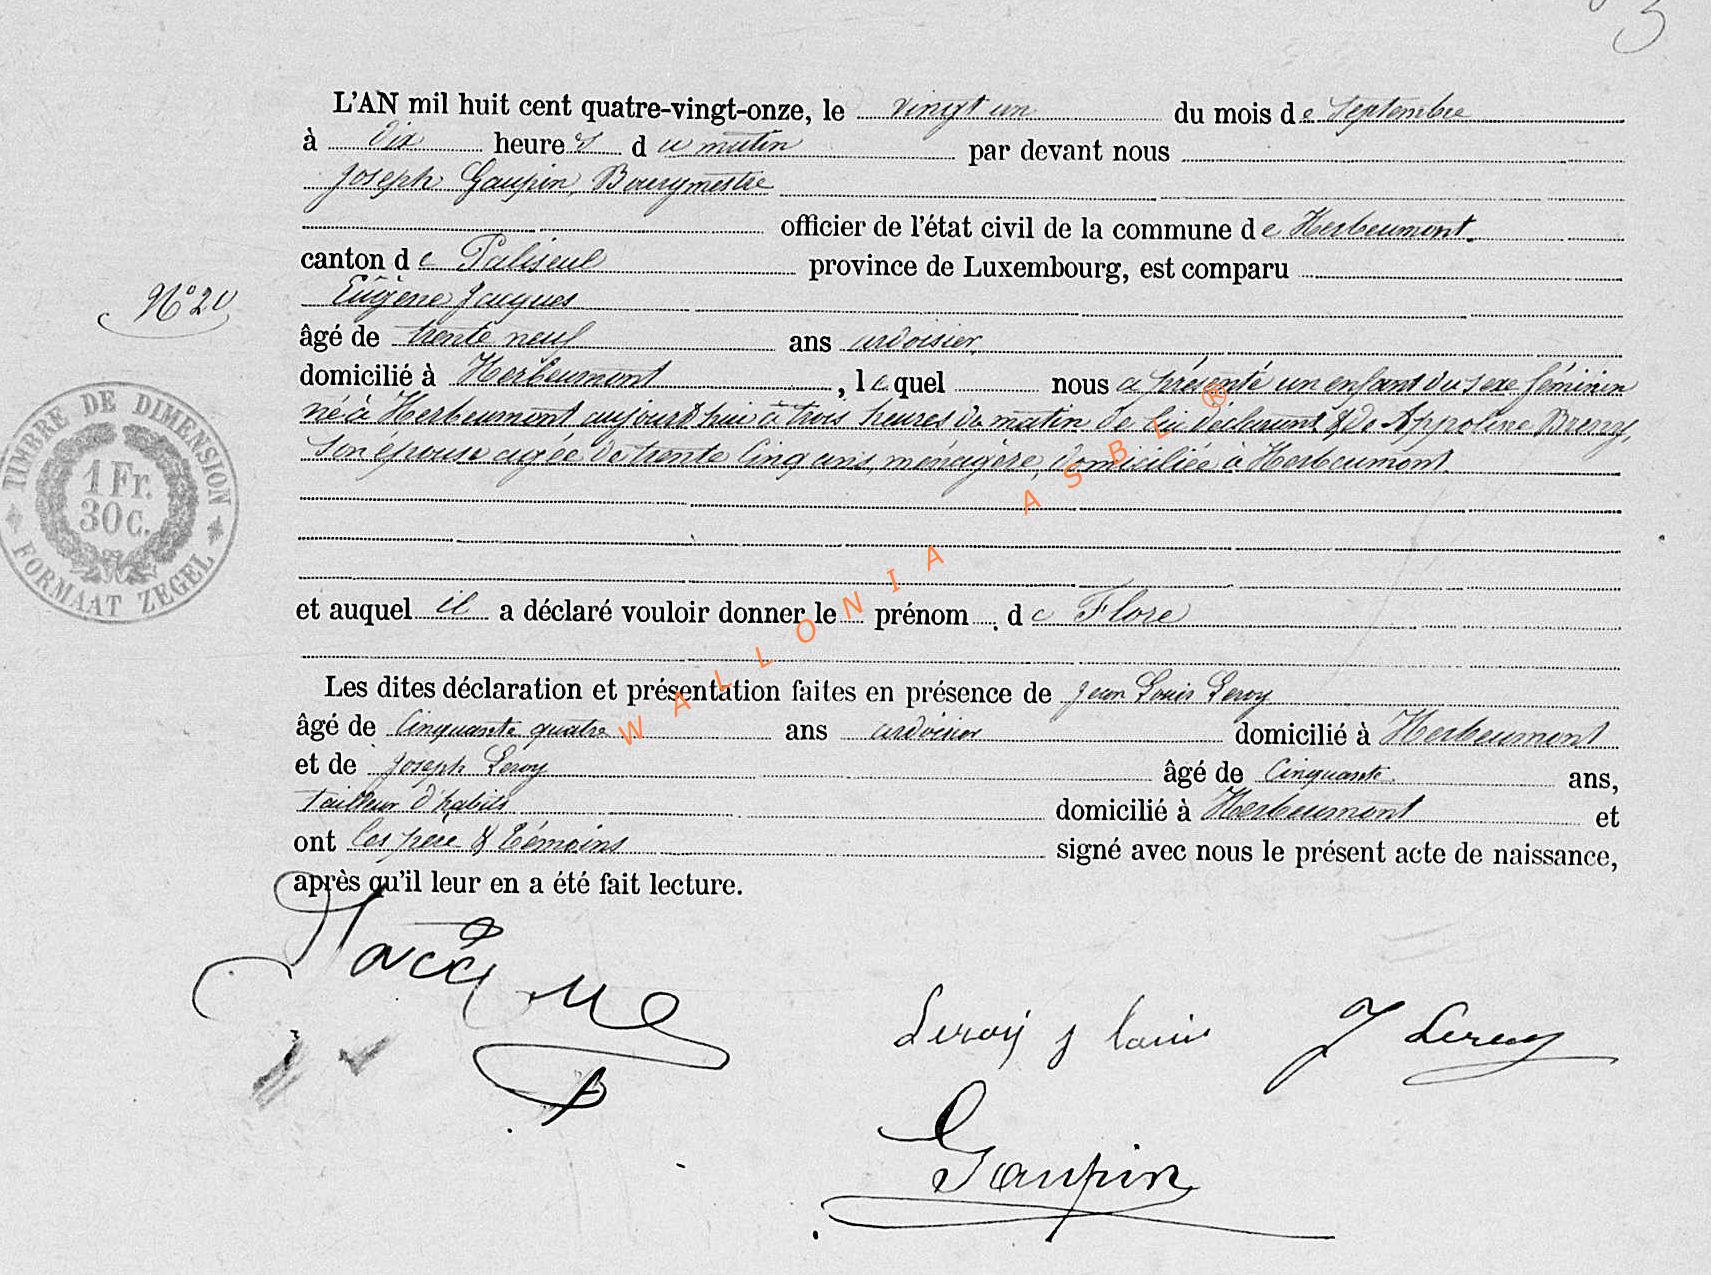 L'AN mil huit cent quatre-vingt-onze, le vingt un du mois de Septembre
à dix heures du matin par devant nous
Joseph Gaupin, Bourgmestre
officier de l'état civil de la commune de Herbeumont.
canton de Paliseul province de Luxembourg, est comparu
N° 20
Eugène Jacques
âgé de trente neuf ans ardoisier
domicilié à Herbeumont, lequel nous a présenté un enfant du sexe féminin
né à Herbeumont aujourd'hui à trois heures du matin de lui déclarant & de Appoline
son épouse agée de trente cinq ans, ménagère, domiciliée à Herbeumont
TIMBRE DE DIMENSION
1 Fr.
30 C.
FORMAAT ZEGEL
et auquel il a déclaré vouloir donner le prénom de Flore
Les dites déclaration et présentation faites en présence de Jean Louis Leroy
âgé de Cinquante quatre ans ardoisier domicilié à Herbeumont
et de Joseph Leroy âgé de Cinquante ans,
tailleur d'habits domicilié à Herbeumont et
ont les père & témoins signé avec nous le présent acte de naissance,
après qu'il leur en a été fait lecture.
WALLONIA ASBL ®
Jacque
Leroy j louis J Leroy
Gaupin